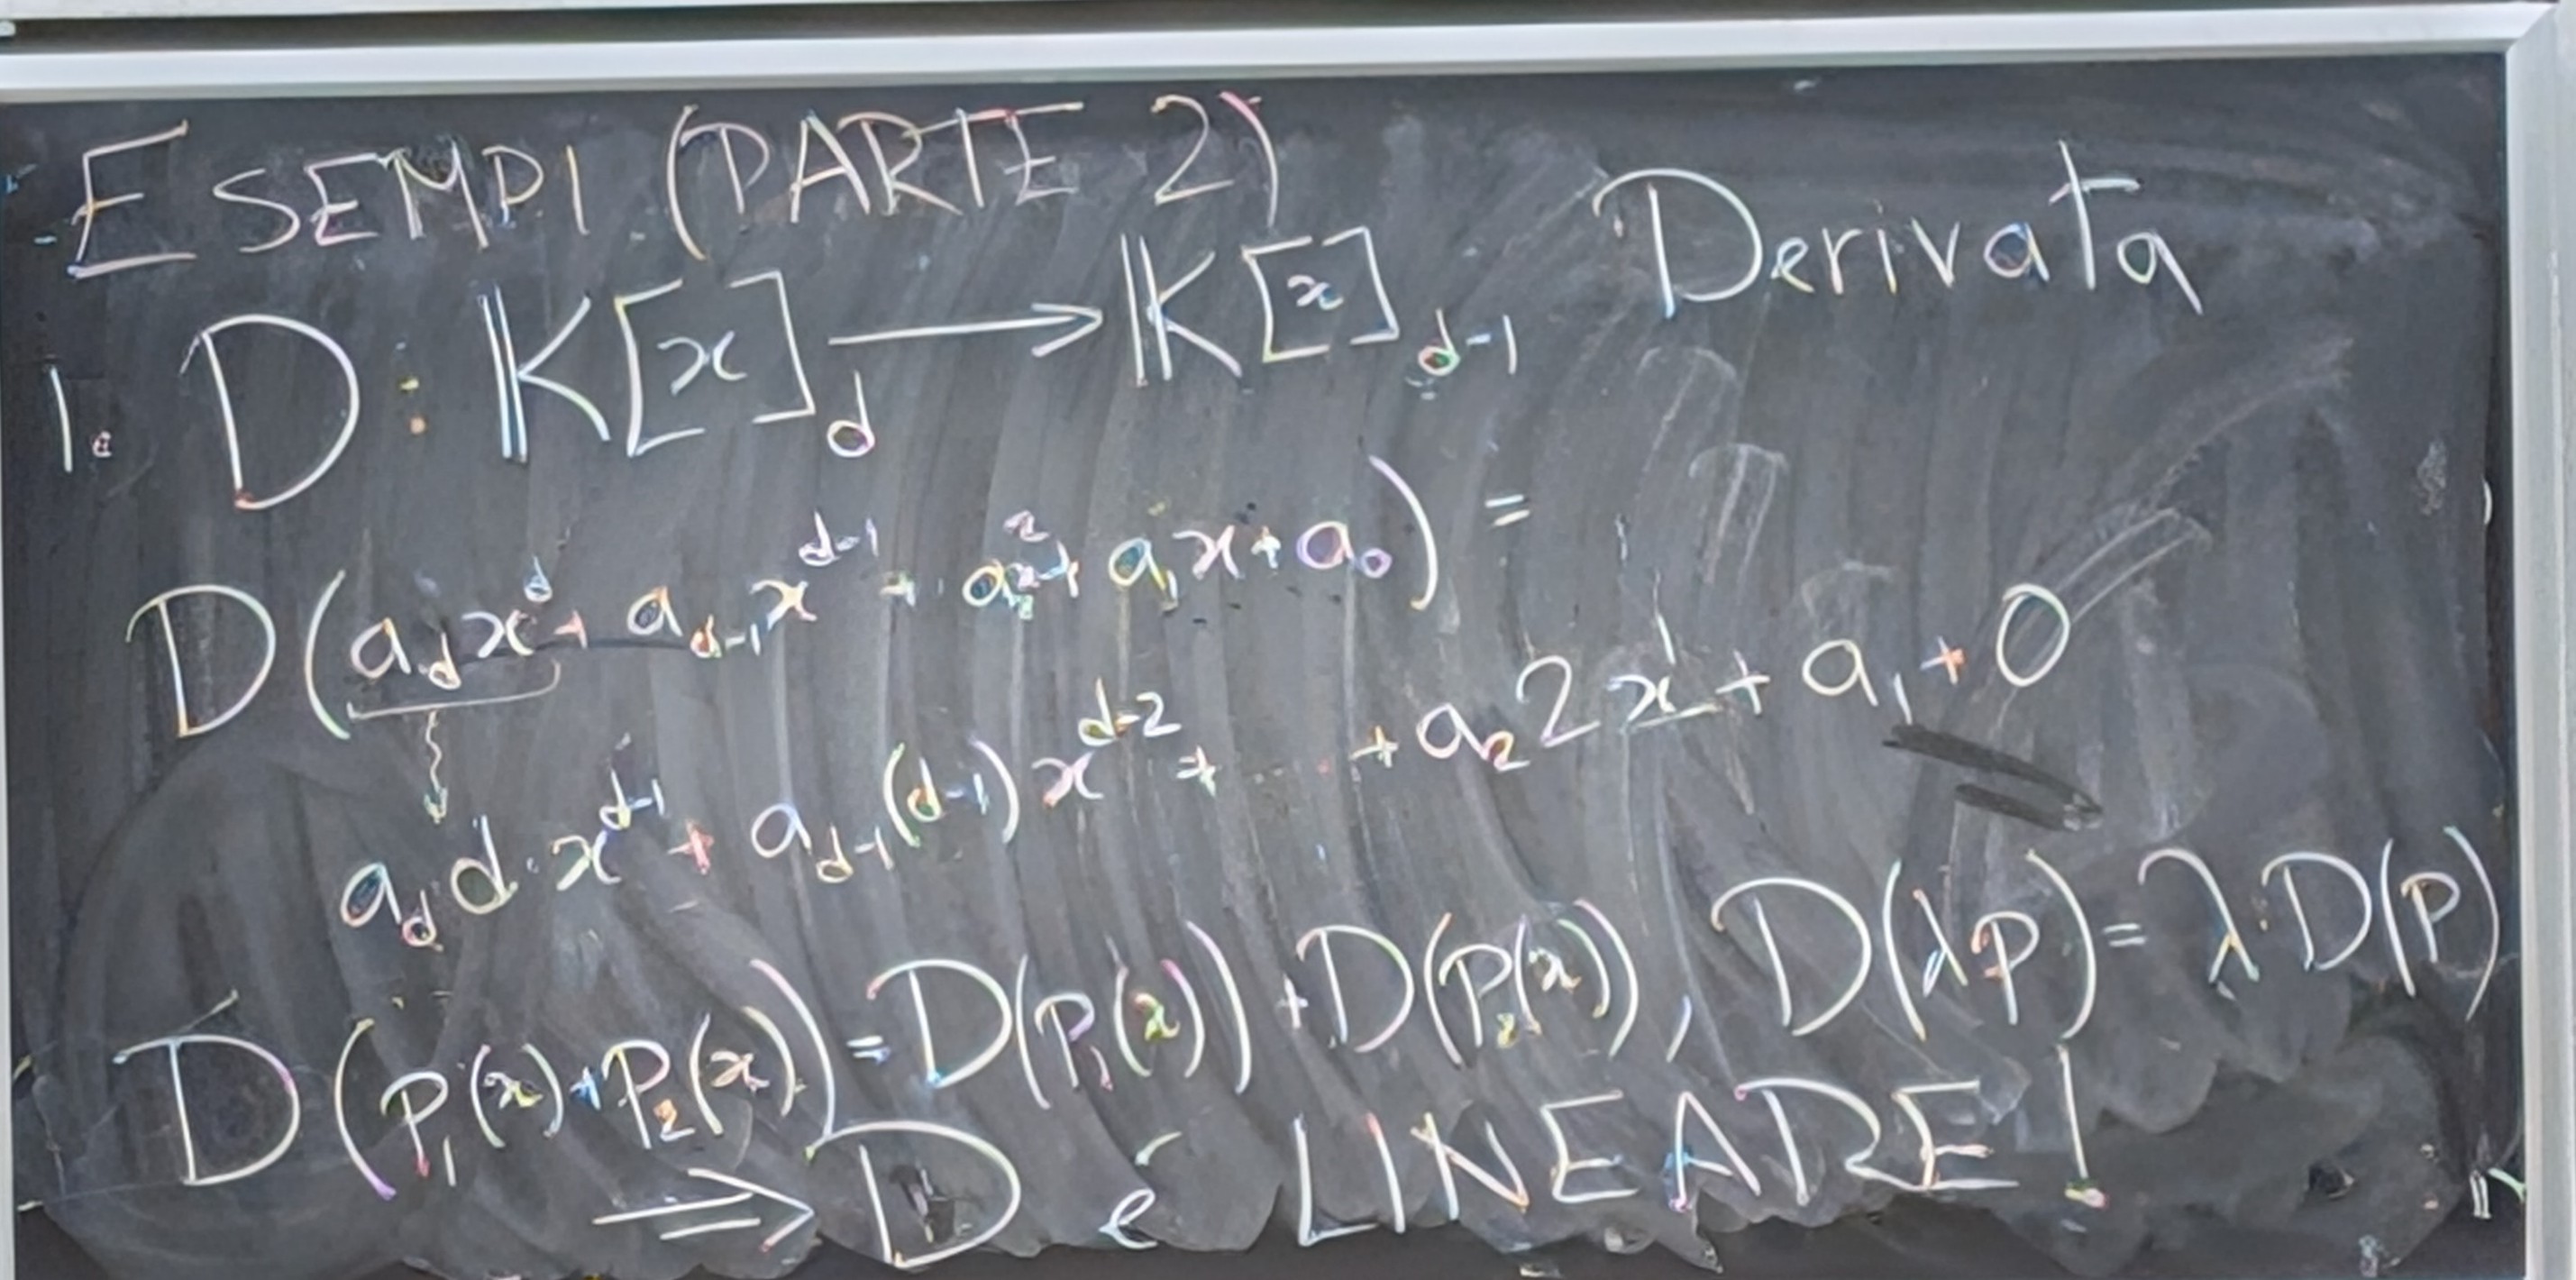 ESEMPI (PARTE 2)
1. D: 𝕂[x]_d → 𝕂[x]_{d-1} Derivata
D(a_d x^d + a_{d-1} x^{d-1} + .. a_2 x^2 + a_1 x + a_0) =
a_d d · x^{d-1} + a_{d-1} (d-1) x^{d-2} + ... + a_2 2 x^1 + a_1 + 0
D(P_1(x) + P_2(x)) = D(P_1(x)) + D(P_2(x)), D(λP) = λ · D(P)
⇒ D é LINEARE!